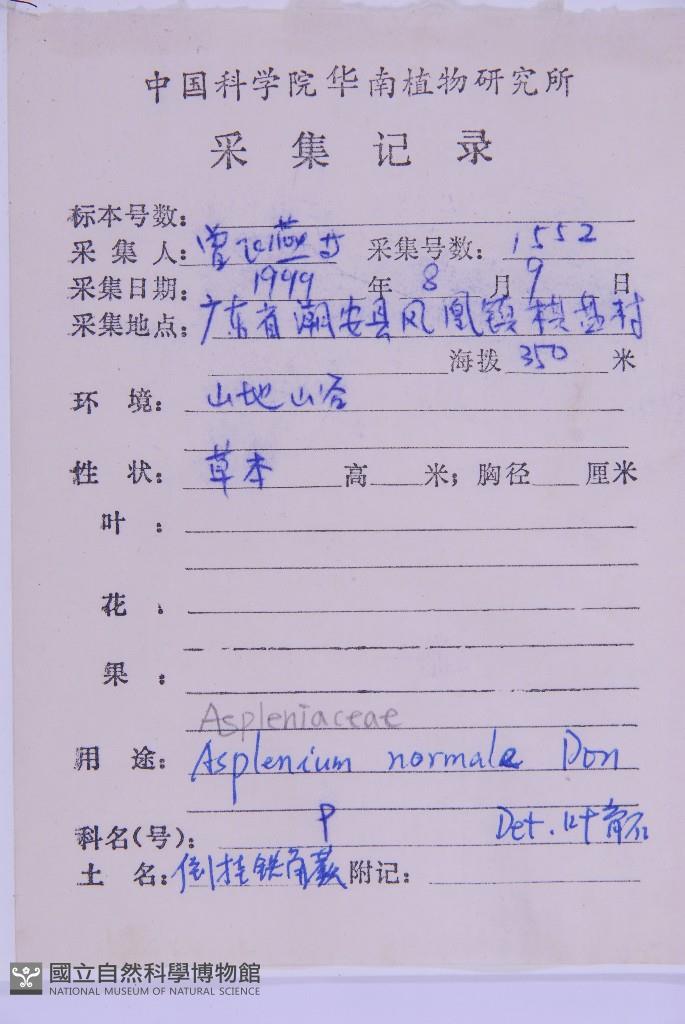 中国科学院华南植物研究所
采集记录
标本号数:
采集人: 曾 采集号数: 1552
采集日期: 1999 年 8 月 9 日
采集地点: 广东省潮安县凤凰镇棋盘村
海拨 350 米
环境: 山地山谷
性状: 草本 高 米; 胸径 厘米
叶:
花:
果:
Aspleniaceae
用途: Asplenium normale Don
科名(号): P Det. 叶育石
土名: 倒挂铁角蕨 附记:
國立自然科學博物館
NATIONAL MUSEUM OF NATURAL SCIENCE